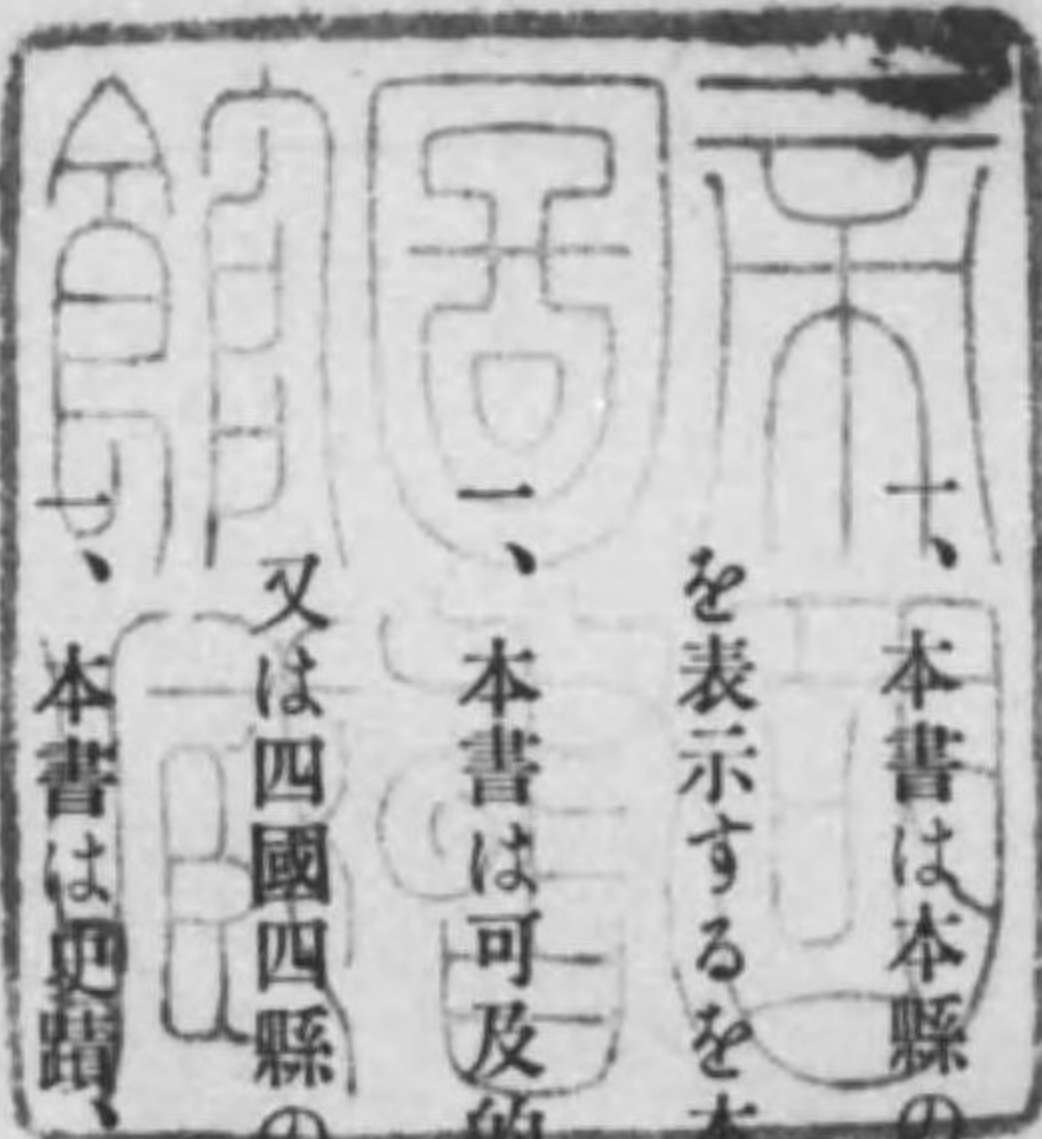 一、本書は本縣の
を表示するを本
一、本書は可及的
又は四國四縣の
一、本書は史蹟、
帝國圖書館藏